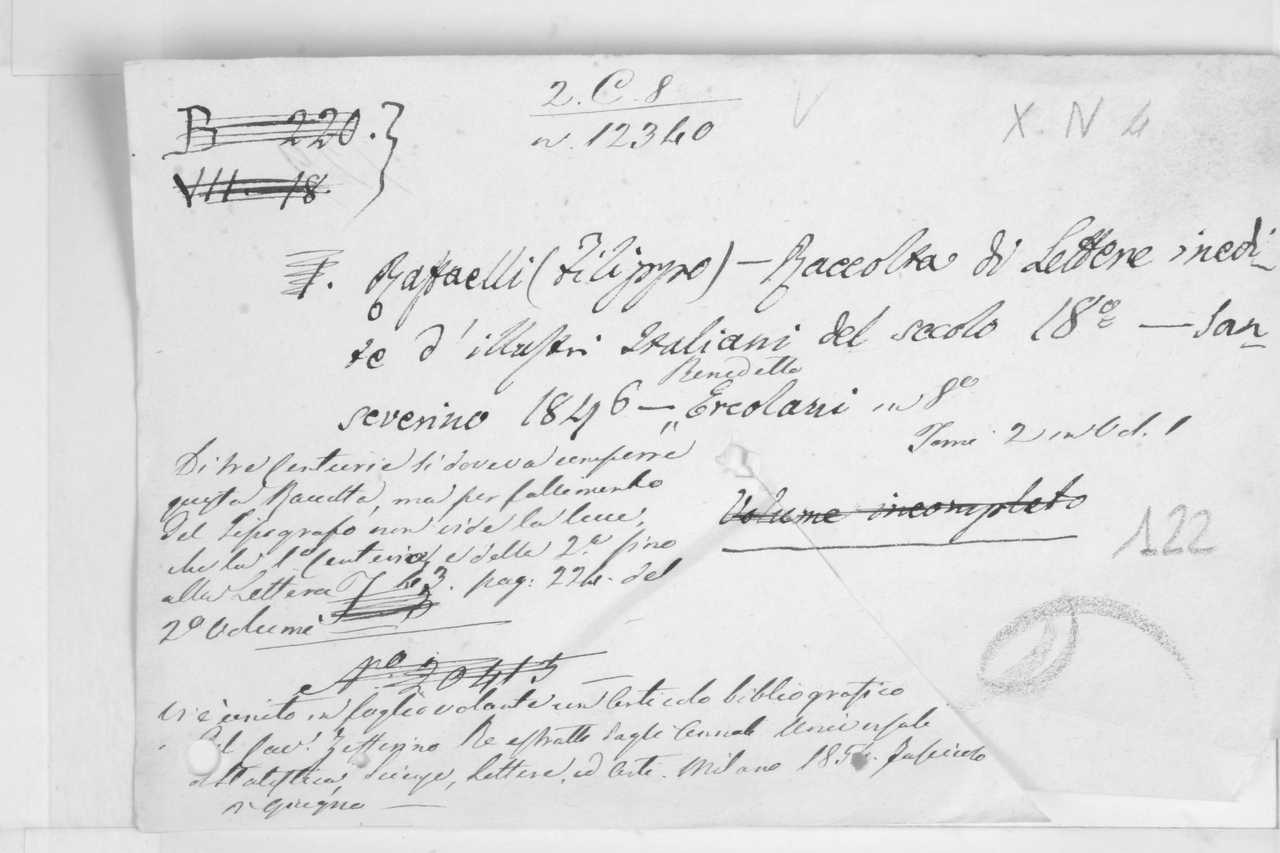 2. C. 8
n. 12340
X. N 4
B 220.
VII. 18
Raffaelli (Filippo) — Raccolta di Lettere inedi-
te d'illustri Italiani del secolo 18º — San-
severino 1846 — Benedetto Ercolani in 8º
Tomi 2 in Vol. 1
Di tre Centurie si doveva comporre
questa Raccolta, ma per fallimento
del Tipografo non vide la luce,
che la 1ª Centuria, e della 2ª fino
alla Lettera pag: 224. del
2º Volume
Volume incompleto
122
Nº 20415
Vi è unito in foglio volante un Articolo bibliografico
del Cav. Zefferino Re estratto dagli Annali Universali
di Statistica, Scienze, Lettere, ed Arti. Milano Fascicolo
Giugno —